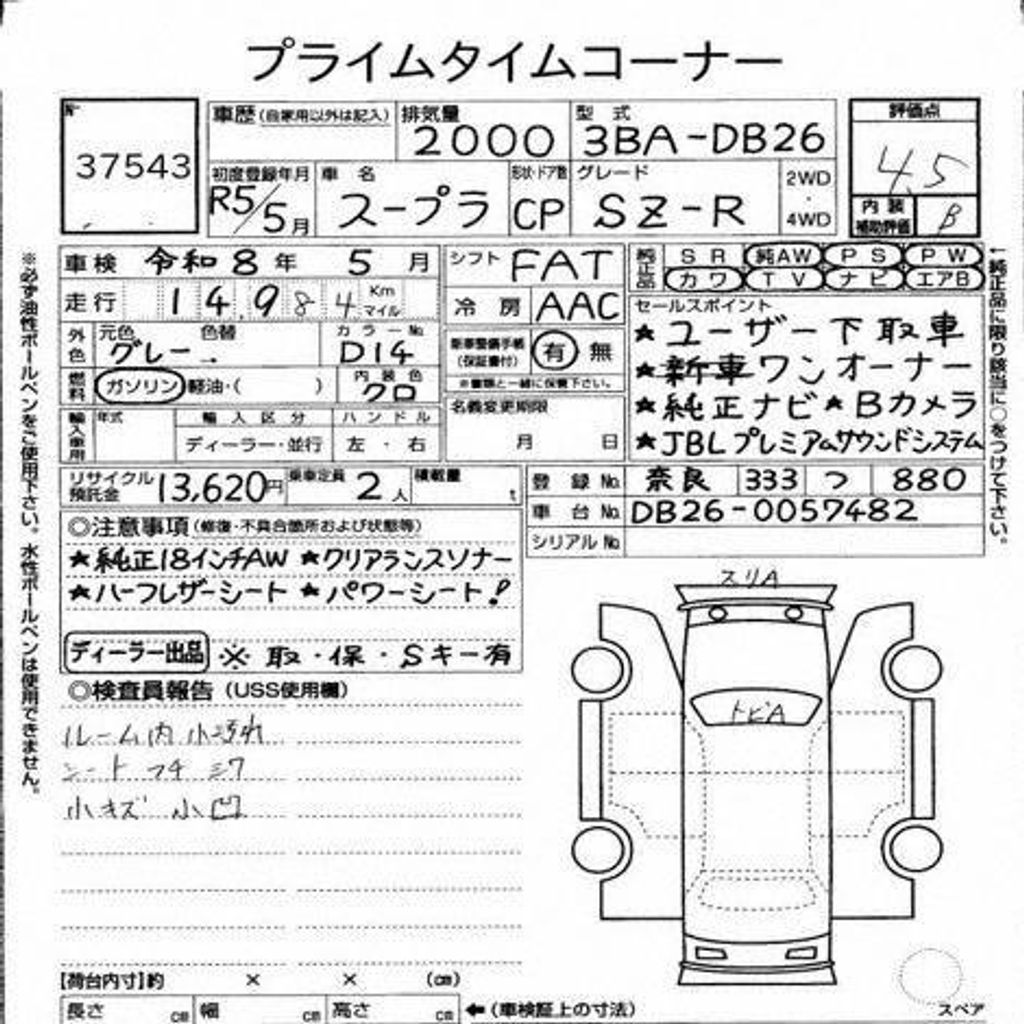 プライムタイムコーナー
37543
車歴(自家用以外は記入) 排気量 2000 型式 3BA-DB26
評価点 4.5
初度登録年月 R5/5月 車名 スープラ 形状・ドア数 CP グレード SZ-R 2WD・4WD
内装補助評価 B
車検 令和8年 5月
シフト FAT
純正品 SR 純AW PS PW
カワ TV ナビ エアB
走行 14,984 Km マイル
冷房 AAC
セールスポイント
★ユーザー下取車
★新車ワンオーナー
★純正ナビ★Bカメラ
★JBLプレミアムサウンドシステム
外色 元色 グレー 色替 カラーNo. D14
新車整備手帳(保証書付) 有 無
※書類と一緒に保管下さい。
燃料 ガソリン 軽油・( ) 内装色 クロ
名義変更期限 月 日
輸入車用 年式 輸入区分 ハンドル
ディーラー・並行 左・右
リサイクル預託金 13,620円 乗車定員 2人 積載量 t
登録No. 奈良 333 つ 880
車台No. DB26-0057482
シリアルNo.
◎注意事項(修復・不具合箇所および状態等)
★純正18インチAW ★クリアランスソナー
★ハーフレザーシート ★パワーシート!
ディーラー出品 ※取・保・Sキー有
◎検査員報告(USS使用欄)
ルーム内 小汚れ
シート フチ ミワ
小キズ 小凹
スリA
トビA
【荷台内寸】約 × × (cm)
長さ cm 幅 cm 高さ cm ←(車検証上の寸法)
スペア
※必ず油性ボールペンをご使用下さい。水性ボールペンは使用できません。
←純正品に限り該当に○をつけて下さい。